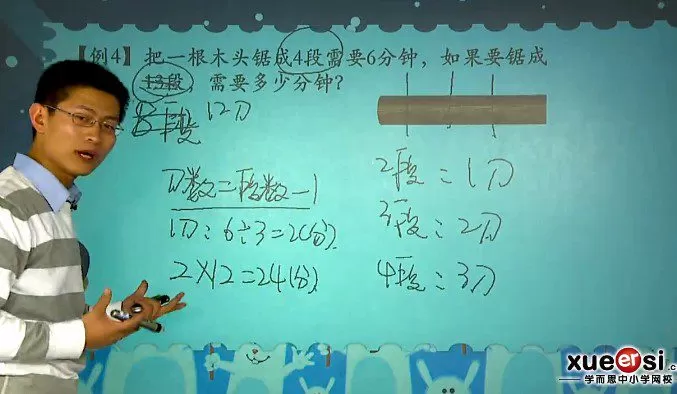 【例4】把一根木头锯成4段需要6分钟，如果要锯成
13段，需要多少分钟？
段 12刀
刀数=段数-1
1刀：6÷3=2(分)
2×12=24(分)
2段：1刀
3段：2刀
4段：3刀
xueersi.com
——学而思中小学网校